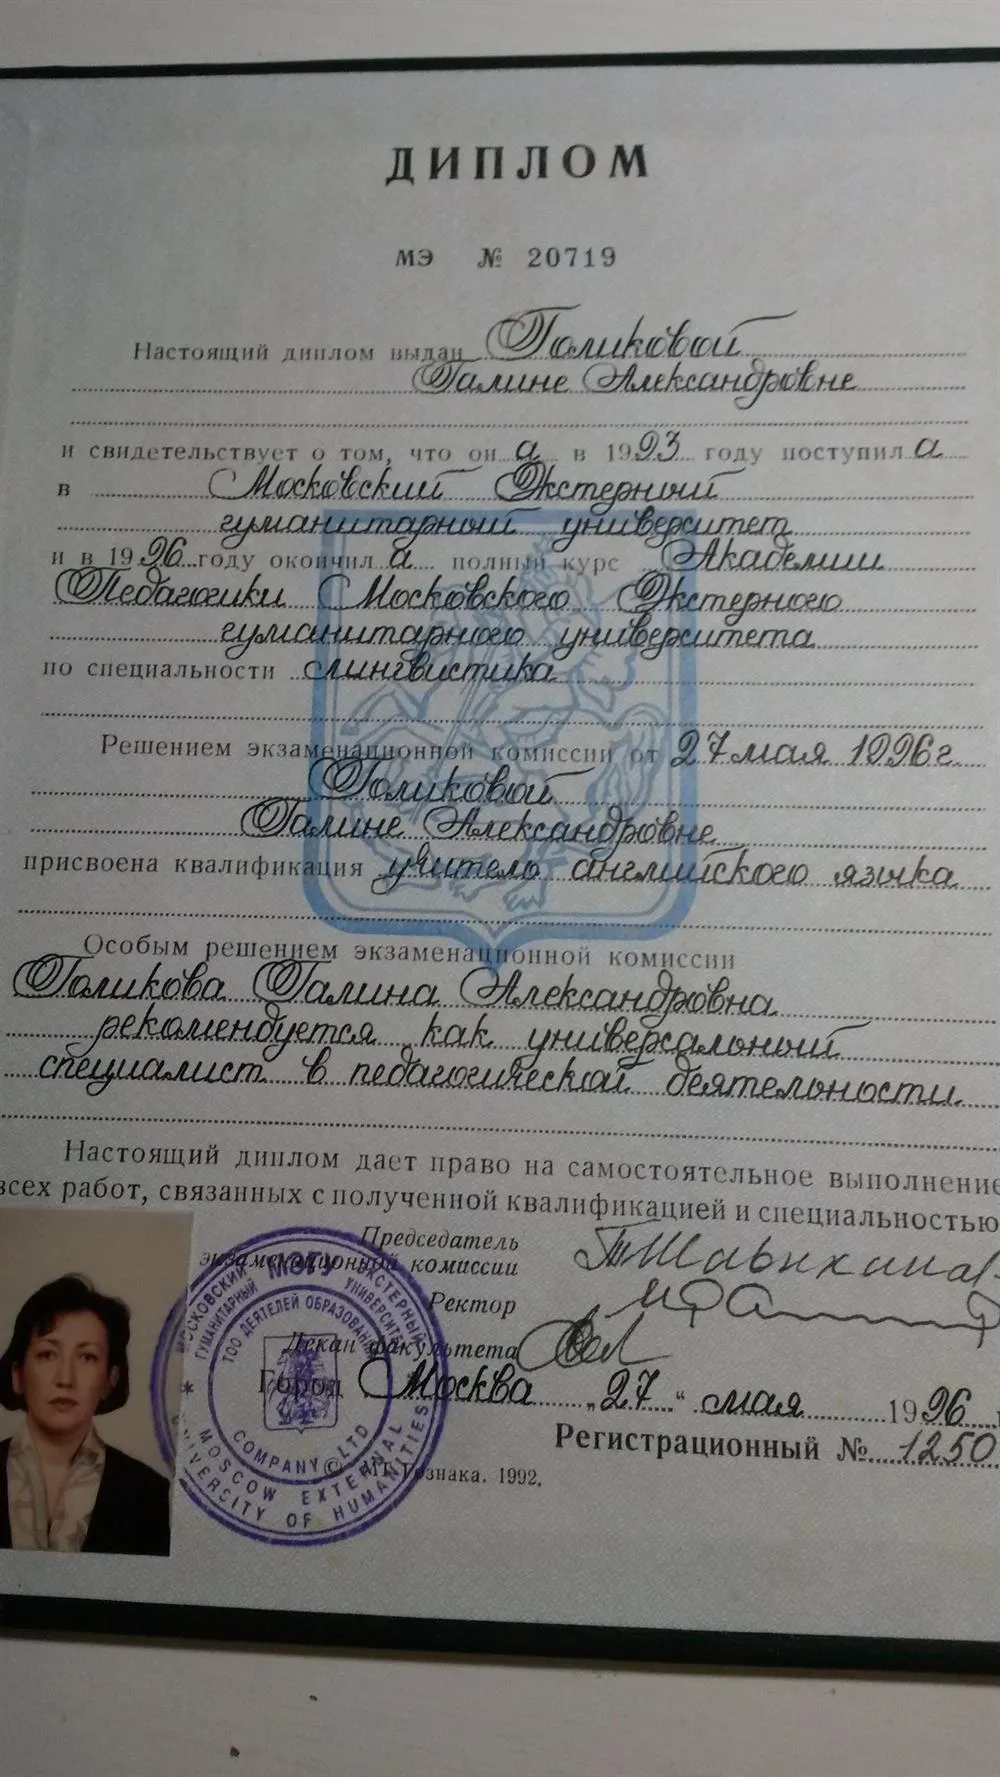 ДИПЛОМ
МЭ № 20719
Настоящий диплом выдан Голиковой
Галине Александровне
и свидетельствует о том, что он а в 1993 году поступил а
в Московский Экстерный
гуманитарный университет
и в 1996 году окончил а полный курс Академии
Педагогики Московского Экстерного
гуманитарного университета
по специальности лингвистика
Решением экзаменационной комиссии от 27 мая 1996 г.
Голиковой
Галине Александровне
присвоена квалификация учитель английского языка
Особым решением экзаменационной комиссии
Голикова Галина Александровна
рекомендуется как универсальный
специалист в педагогической деятельности.
Настоящий диплом дает право на самостоятельное выполнение
всех работ, связанных с полученной квалификацией и специальностью.
Председатель
экзаменационной комиссии
Ректор
Декан факультета
Город Москва „27“ мая 1996
Регистрационный № 1250
МТ Гознака. 1992.
МОСКОВСКИЙ ЭКСТЕРНЫЙ
МЭГУ
ГУМАНИТАРНЫЙ УНИВЕРСИТЕТ
ТОО ДЕЯТЕЛЕЙ ОБРАЗОВАНИЯ
COMPANY © LTD
MOSCOW EXTERNAL
UNIVERSITY OF HUMANITIES